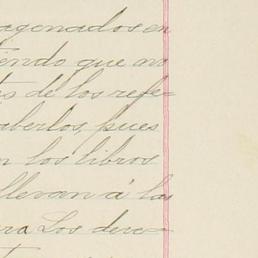 agenados en
tiendo que no
s de los refe-
aberlos, pues
n los libros
llevan á las
ra Los dere-